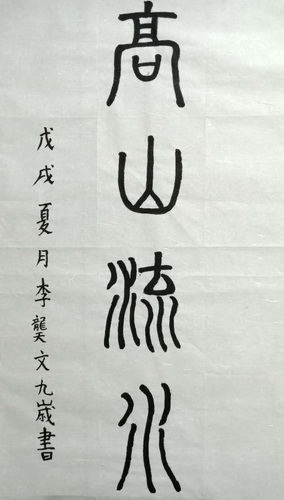 高山流水
戊戌夏月李龑文九歲書